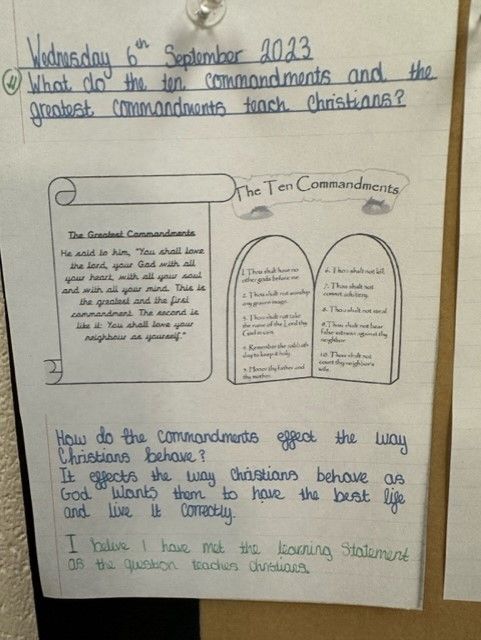 Wednesday 6th September 2023
What do the ten commandments and the
greatest commandments teach Christians?
The Ten Commandments
The Greatest Commandments
He said to him, "You shall love
the lord, your God with all
your heart, with all your soul
and with all your mind. This is
the greatest and the first
commandment. The second is
like it: You shall love your
neighbour as yourself."
1. Thou shalt have no
other gods before me
2. Thou shalt not worship
any graven image
3. Thou shalt not take
the name of the Lord thy
God in vain
4. Remember the sabbath
day to keep it holy
5. Honor thy father and
thy mother.
6. Thou shalt not kill
7. Thou shalt not
commit adultery.
8. Thou shalt not steal
9. Thou shalt not bear
false witness against thy
neighbor
10. Thou shalt not
covet thy neighbor's
wife.
How do the commandments effect the way
Christians behave?
It effects the way christians behave as
God wants them to have the best life
and live it correctly.
I belive I have met the learning statement
as the question teaches christians